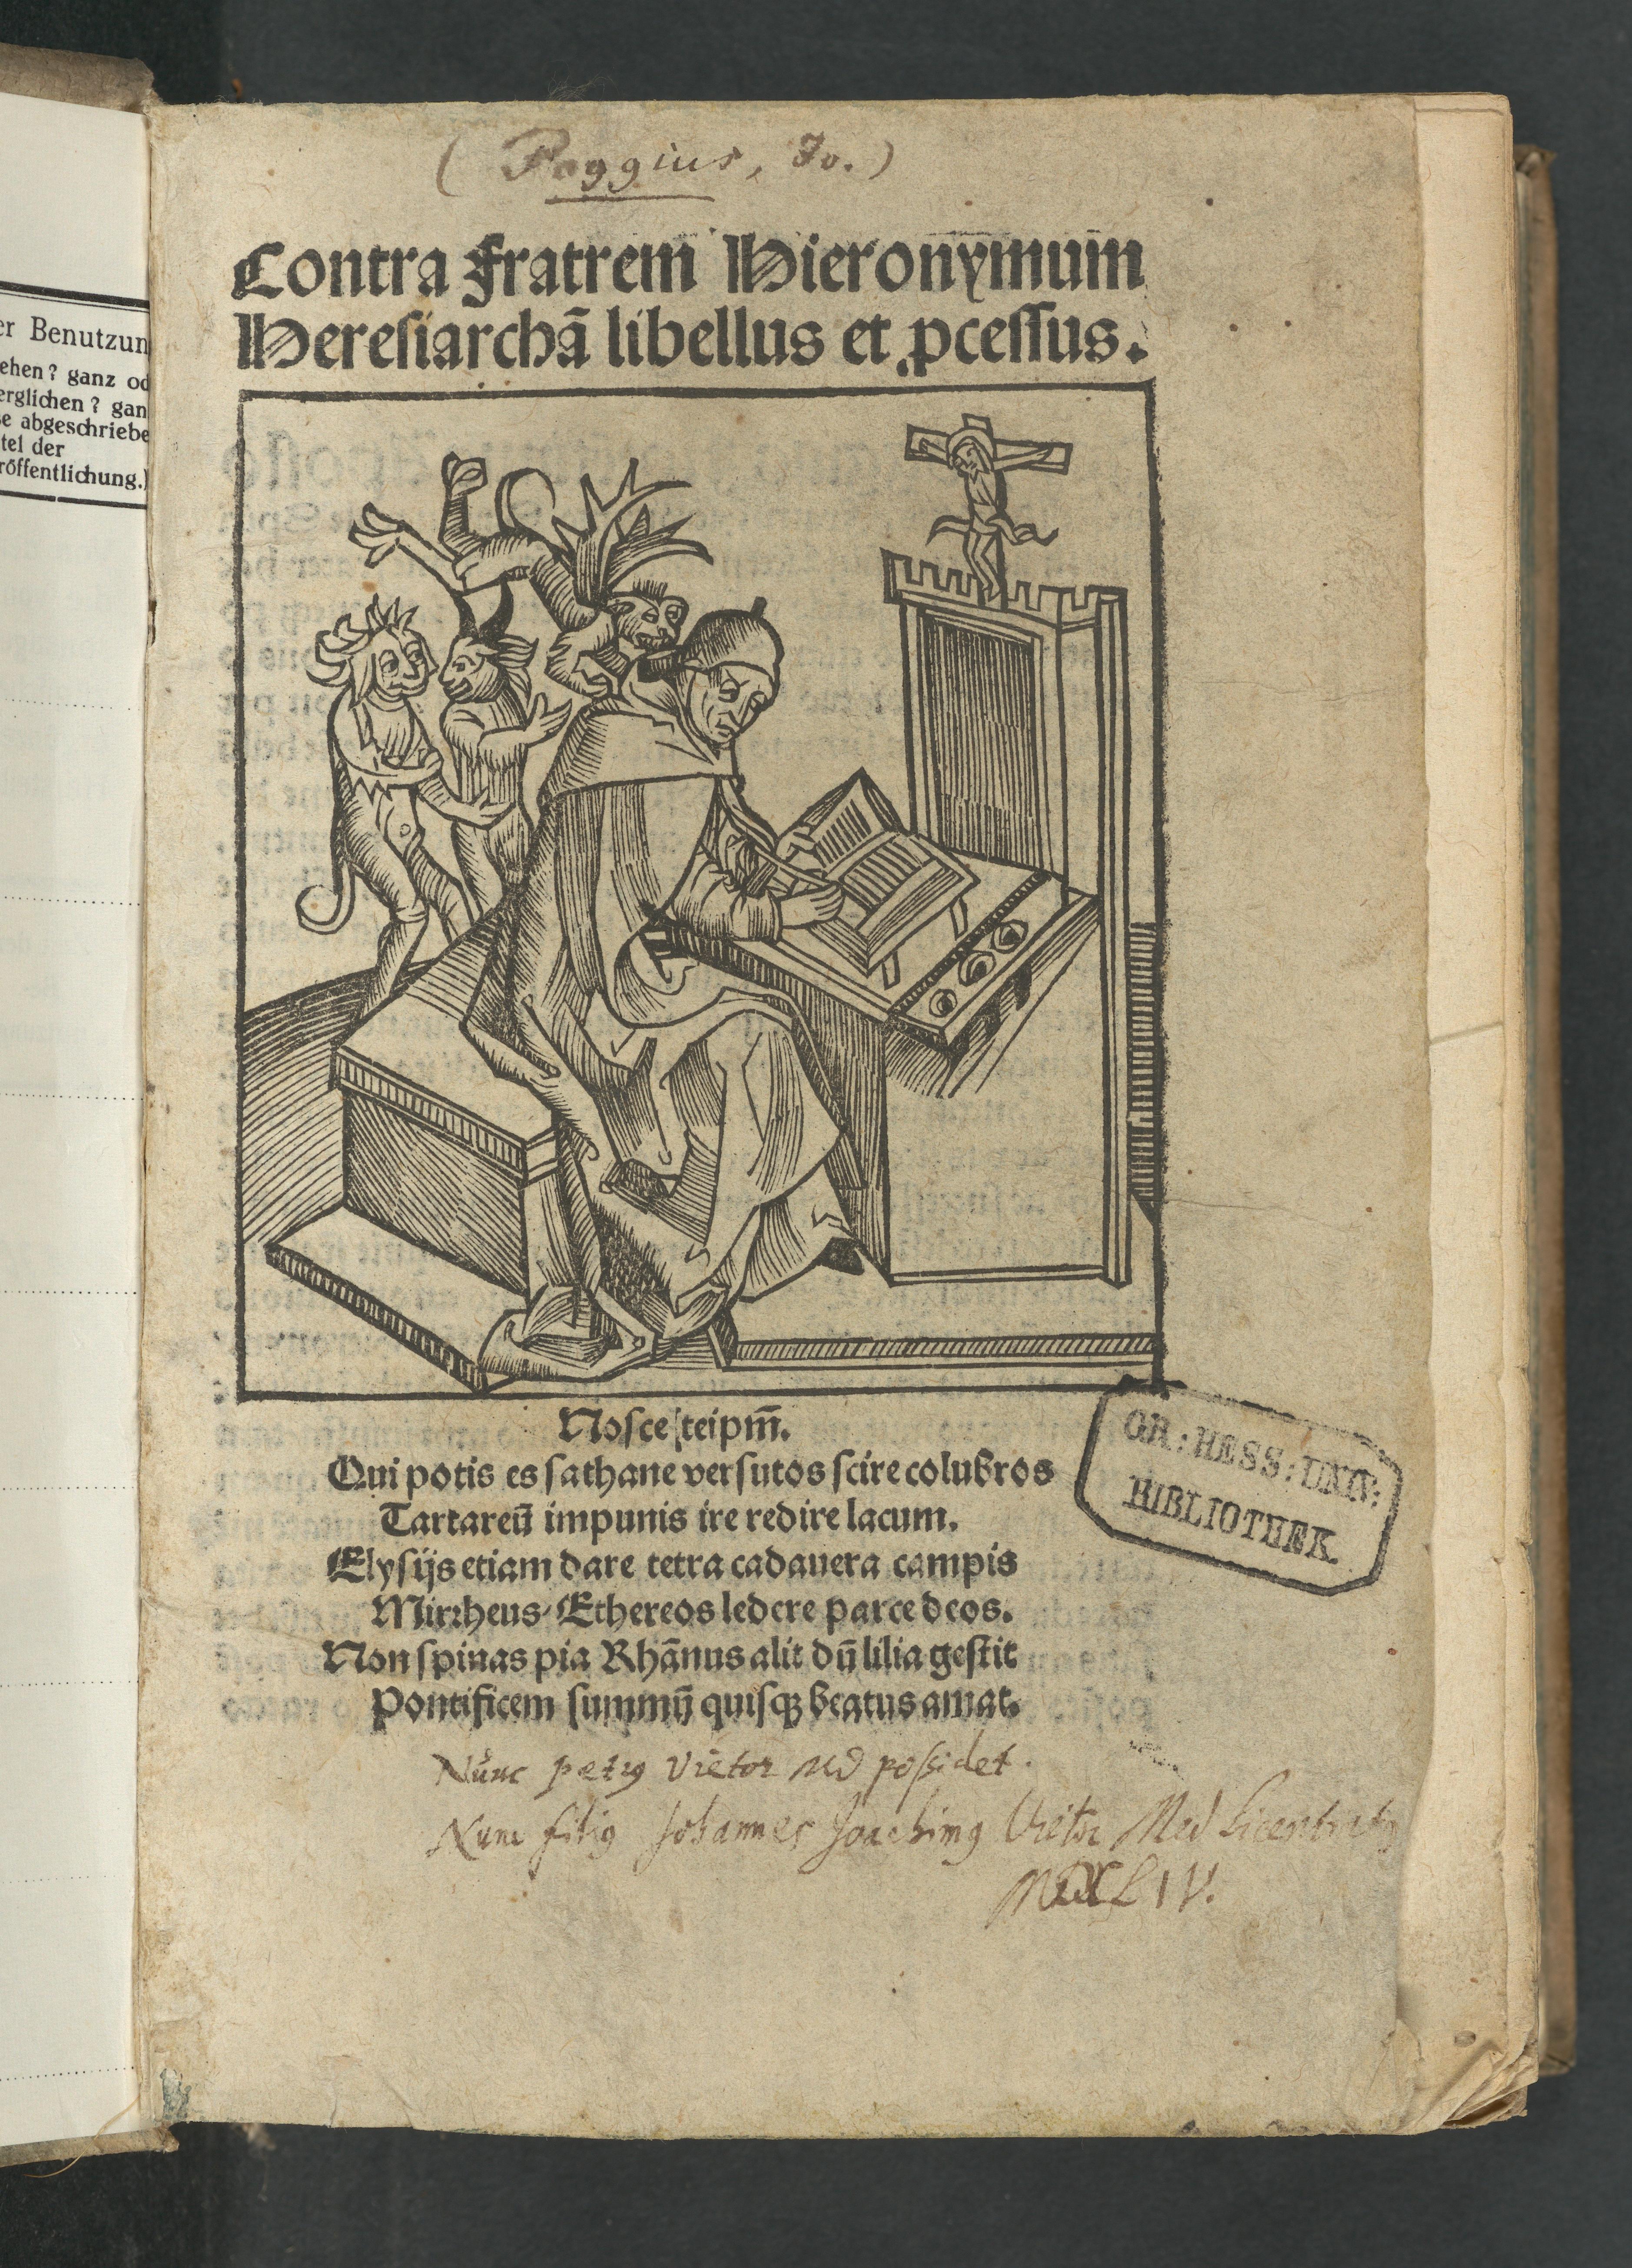 er Benutzun
ehen? ganz od
erglichen? gan
se abgeschriebe
tel der
röffentlichung.)
( Poggius, Jo. )
Contra fratrem Hieronymum
Heresiarchã libellus et ꝓcessus.
Nosce teipm̄.
Qui potis es sathane versutos scire colubros
Tartareū impunis ire redire lacum.
Elysijs etiam dare tetra cadauera campis
Mirrheus, Ethereos ledere parce deos.
Non spinas pia Rhãnus alit dū lilia gestit
Pontificem summū quisqꝫ beatus amat.
GR: HESS: UNIV:
BIBLIOTHEK.
Nunc petrꝰ Vietor MD possidet.
Nunc filiꝰ Johannes Joachimꝰ Vietor Med Licentiatꝰ